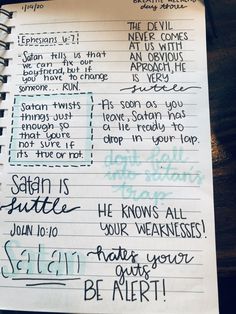 1/19/20
BREATHE WEEKEND
day three
Ephesians 6:7
-Satan tells us that
we can fix our
boyfriend, but if
you have to change
someone... RUN.
THE DEVIL
NEVER COMES
AT US WITH
AN OBVIOUS
APROACH, HE
IS VERY
suttle
Satan twists
things just
enough so
that you're
not sure if
it's true or not.
-As soon as you
leave, Satan has
a lie ready to
drop in your lap.
don't fall
into satans
trap
Satan is
suttle
JOHN 10:10
HE KNOWS ALL
YOUR WEAKNESSES!
Satan hates your
guts
BE ALERT!